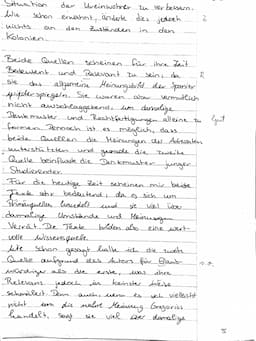 Situation der Ureinwohner zu verbessern.
Wie schon erwähnt, änderte dies jedoch
nichts an den Zuständen in den
Kolonien.
Beide Quellen scheinen für ihre Zeit
Bedeutend und Relevant zu sein, da
sie das allgemeine Meinungsbild der Spanier
wiederspiegeln. Sie waren aber vermutlich
nicht ausschlaggebend, um damalige
Denkmuster und Rechtfertigungen alleine zu
formen. Dennoch ist es möglich, dass
beide Quellen die Meinungen des Adressaten
unterstützten und gerade die zweite
Quelle beeinflusste die Denkmuster junger
Studierender.
Für die heutige Zeit scheinen mir beide
Texte sehr bedeutend, da es sich um
Primärquellen handelt und sie viel über
damalige Umstände und Meinungen
Verrät. Die Texte bilden also eine wert-
volle Wissensquelle.
Wie schon gesagt halte ich die zweite
Quelle aufgrund des Autors für Glaub-
würdiger als die erste, was ihre
Relevanz jedoch in keinster Weise
schmälert. Denn auch wenn es sich vielleicht
nicht um die wahre Meinung Gregorios
handelt, sagt sie viel über damalige
gut
5